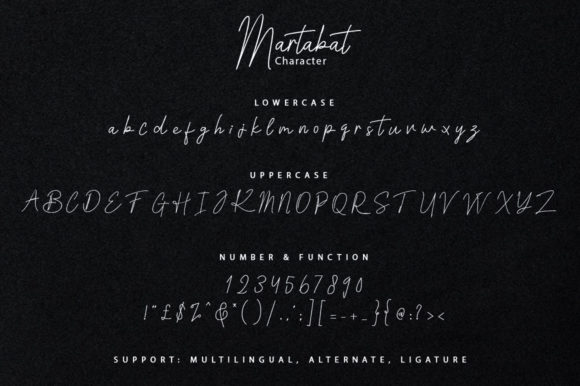 Martabat
Character
LOWERCASE
a b c d e f g h i j k l m n o p q r s t u v w x y z
UPPERCASE
A B C D E F G H I J K L M N O P Q R S T U V W X Y Z
NUMBER & FUNCTION
1 2 3 4 5 6 7 8 9 0
! " £ $ % ^ & * ( ) / . , ; ] [ = - + _ } { @ : ? > <
SUPPORT: MULTILINGUAL, ALTERNATE, LIGATURE